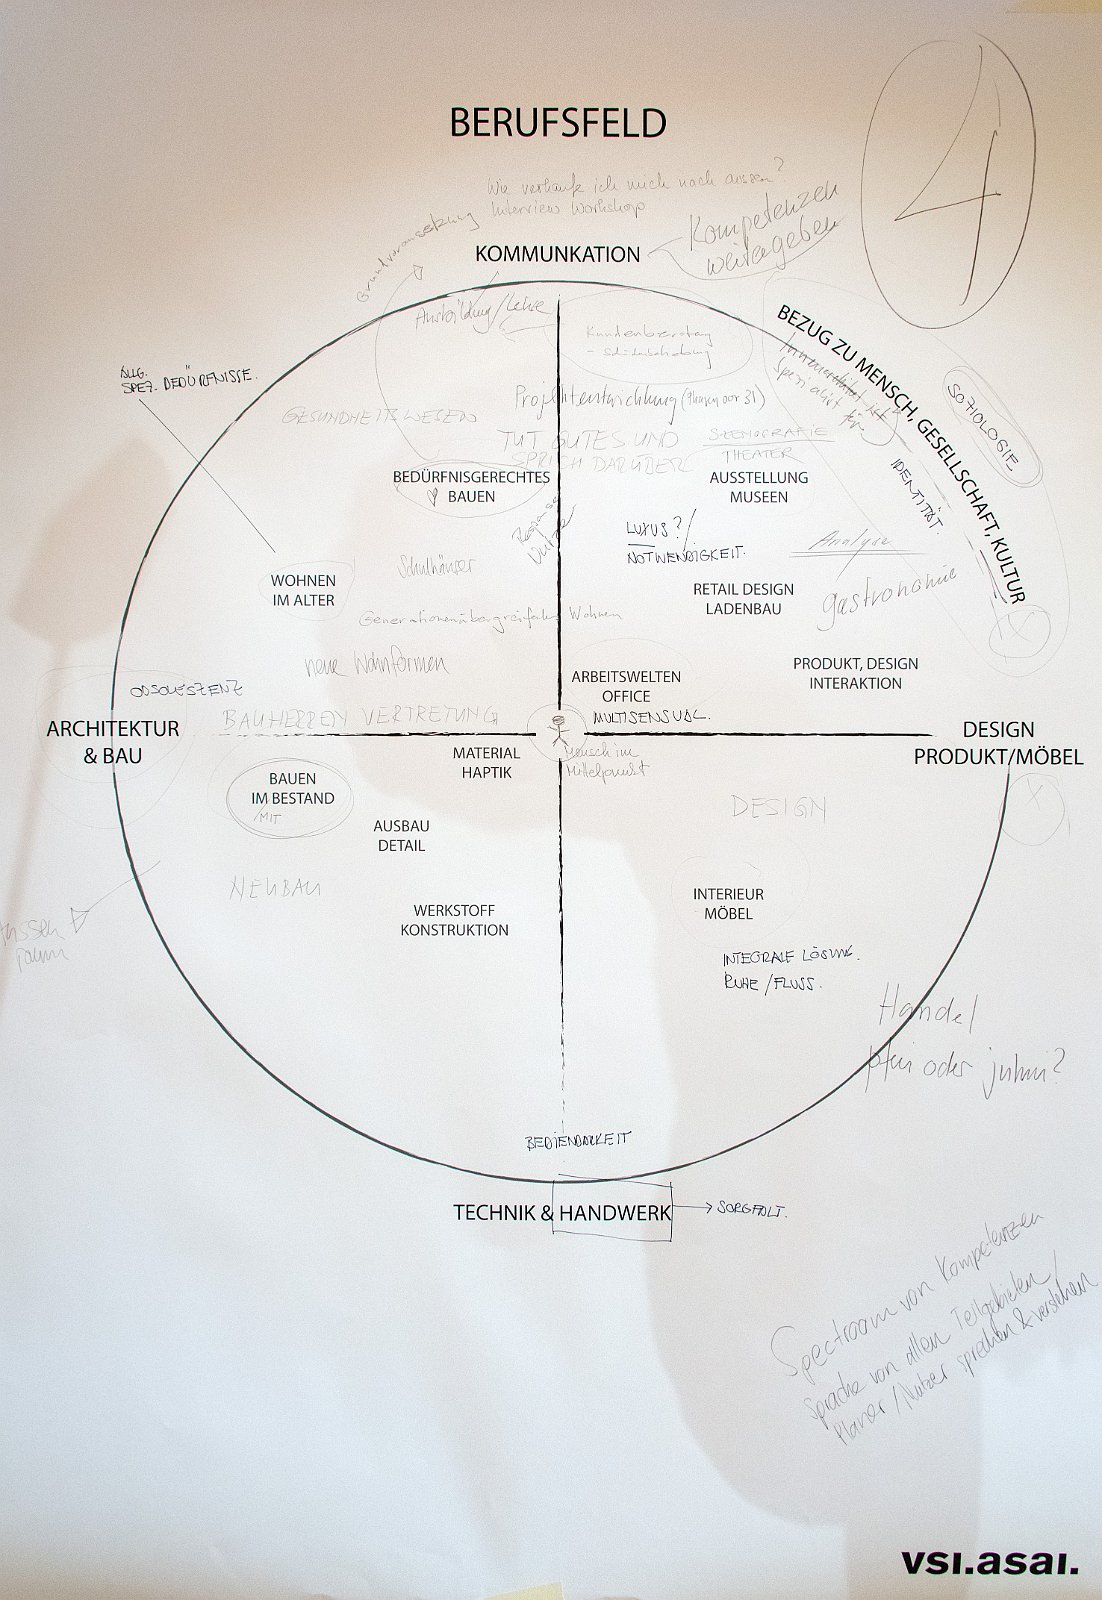 4
BERUFSFELD
Wie verkaufe ich mich nach aussen?
Interview Workshop
Grundvoraussetzung
Kompetenzen
weitergeben
KOMMUNKATION
Ausbildung/Lehre
Kundenberatung
BEZUG ZU MENSCH, GESELLSCHAFT, KULTUR
Innenarchitekt ist
Spezialist für
ALLG.
SPEZ. BEDÜRFNISSE.
SOZIOLOGIE
Projektentwicklung (Phasen vor 31)
GESUNDHEITSWESEN
TUT GUTES UND
SPRICH DARÜBER
SZENOGRAFIE
THEATER
IDENTITÄT
BEDÜRFNISGERECHTES
BAUEN
AUSSTELLUNG
MUSEEN
LUXUS?/
NOTWENDIGKEIT.
Analyse
Schulhäuser
WOHNEN
IM ALTER
RETAIL DESIGN
LADENBAU
Gastronomie
Generationenübergreifendes Wohnen
neue Wohnformen
ARBEITSWELTEN
OFFICE
MULTISENSUAL.
PRODUKT, DESIGN
INTERAKTION
OBSOLESZENZ
BAUHERREN VERTRETUNG
ARCHITEKTUR
& BAU
DESIGN
PRODUKT/MÖBEL
MATERIAL
HAPTIK
Mensch im
Mittelpunkt
BAUEN
IM BESTAND
/MIT
DESIGN
AUSBAU
DETAIL
NEUBAU
INTERIEUR
MÖBEL
WERKSTOFF
KONSTRUKTION
Aussen
raum
INTEGRALE LÖSUNG.
RUHE/FLUSS.
Handel
pfui oder juhui?
BEDIENBARKEIT
TECHNIK & HANDWERK
SORGFALT.
Spectroom von Kompetenzen
Sprache von allen Teilgebieten/
Planer/Nutzer sprechen & verstehen
vsi.asai.